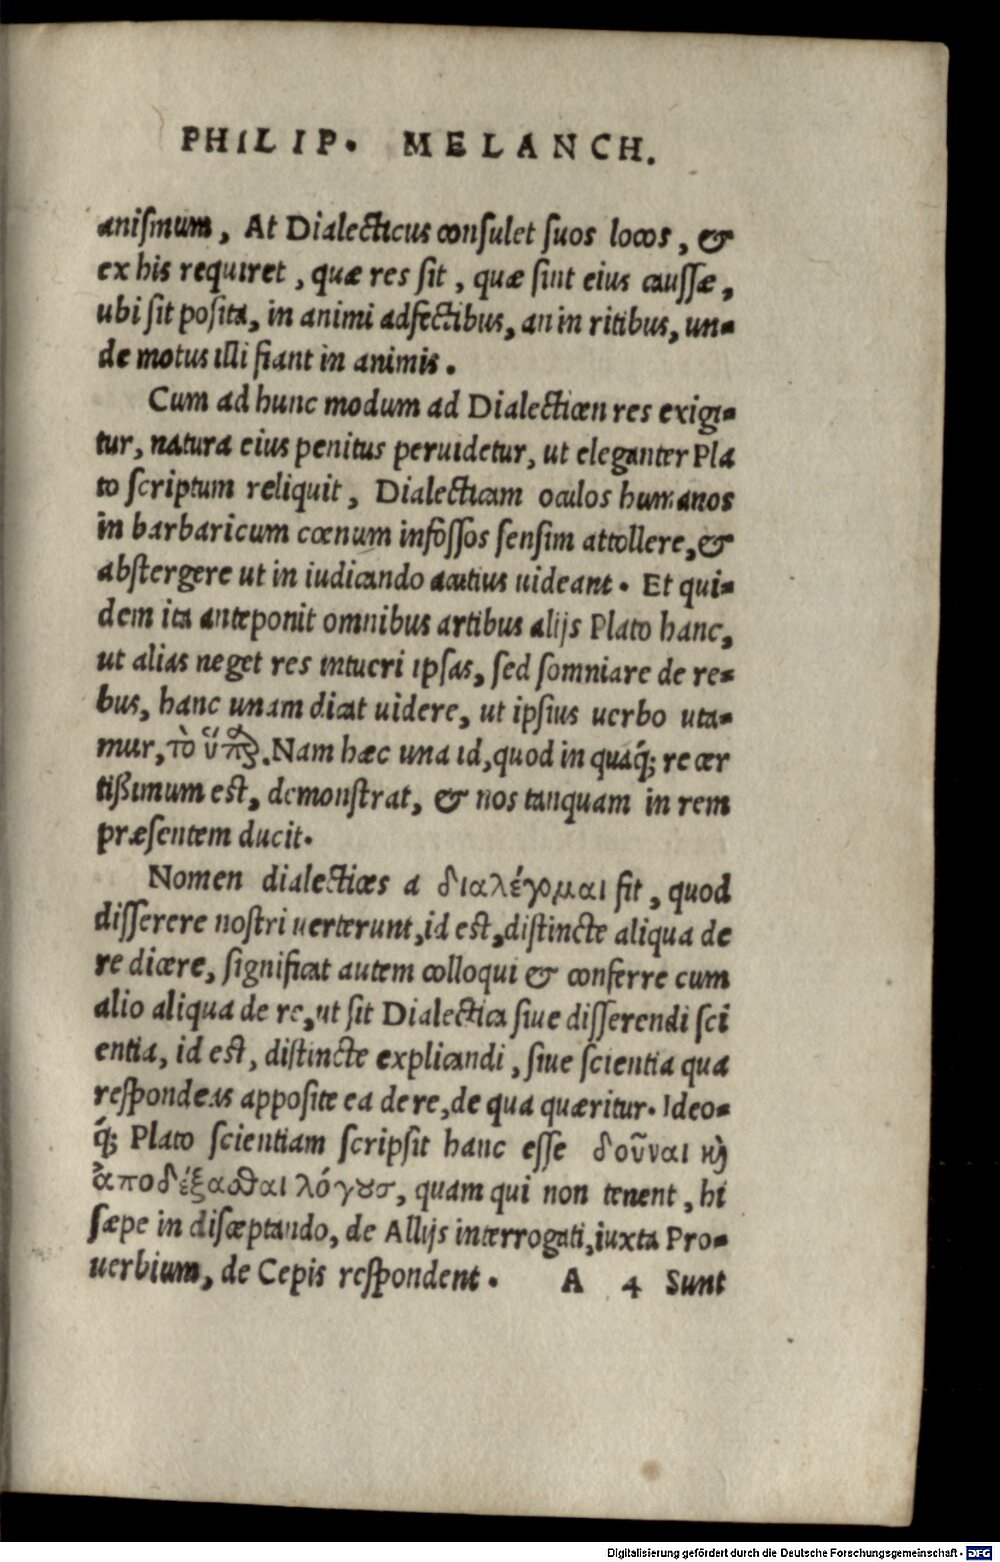 PHILIP. MELANCH.
aniſmum, At Dialecticus conſulet ſuos locos, &
ex his requiret, quæ res ſit, quæ ſint eius cauſſæ,
ubi ſit poſita, in animi adfectibus, an in ritibus, un-
de motus illi fiant in animis.
Cum ad hunc modum ad Dialecticen res exigi-
tur, natura eius penitus peruidetur, ut eleganter Pla
to ſcriptum reliquit, Dialecticam oculos humanos
in barbaricum cœnum infoſſos ſenſim attollere, &
abſtergere ut in iudicando acutius uideant. Et qui-
dem ita anteponit omnibus artibus alijs Plato hanc,
ut alias neget res intueri ipſas, ſed ſomniare de re-
bus, hanc unam dicat uidere, ut ipſius uerbo uta-
mur, τὸ ὕπαρ. Nam hæc una id, quod in quaq́; re cer
tißimum eſt, demonſtrat, & nos tanquam in rem
præſentem ducit.
Nomen dialectices a διαλέγομαι fit, quod
diſſerere noſtri uerterunt, id eſt, diſtincte aliqua de
re dicere, ſignificat autem colloqui & conferre cum
alio aliqua de re, ut ſit Dialectica ſiue diſſerendi ſci
entia, id eſt, diſtincte explicandi, ſiue ſcientia qua
reſpondeas appoſite ea de re, de qua quæritur. Ideo-
q́; Plato ſcientiam ſcripſit hanc eſſe δοῦναι ϗ̀
ἀποδέξασθαι λόγȣσ, quam qui non tenent, hi
ſæpe in diſceptando, de Allijs interrogati, iuxta Pro-
uerbium, de Cepis reſpondent. A 4 Sunt
Digitalisierung gefördert durch die Deutsche Forschungsgemeinschaft - DFG